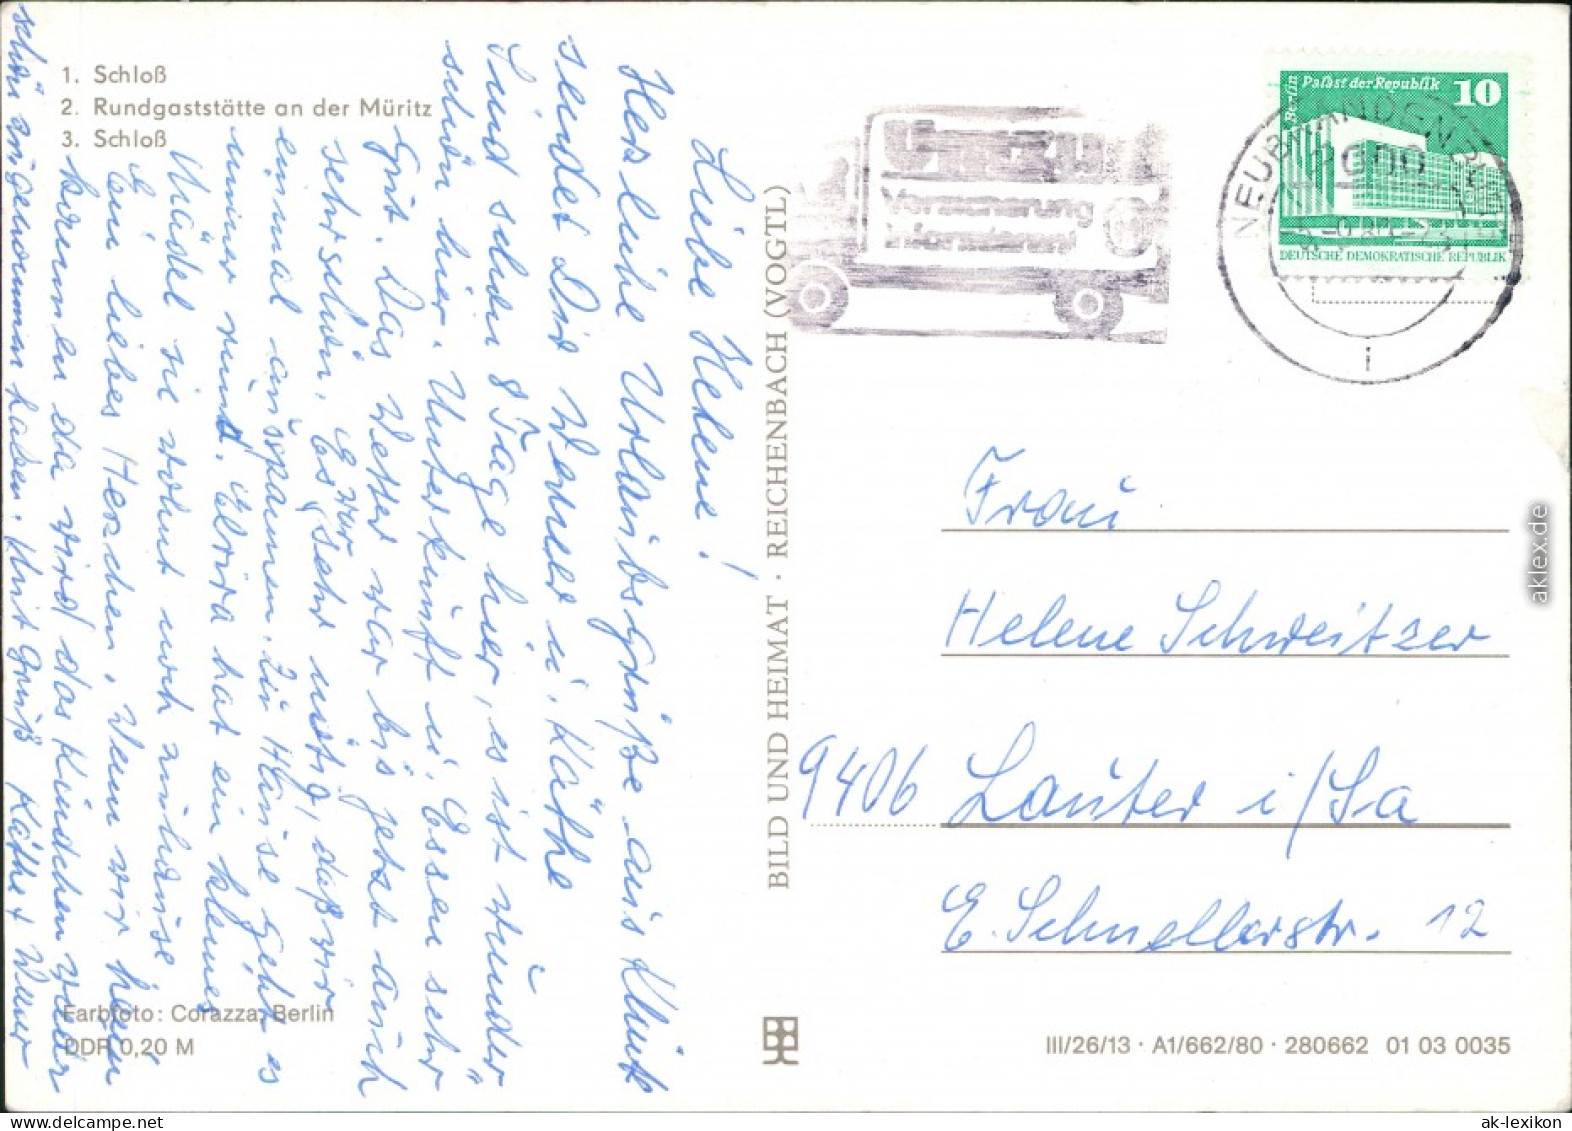 1. Schloß
2. Rundgaststätte an der Müritz
3. Schloß
Liebe Helene!
Herzliche Urlaubsgrüße aus Klink
sendet Dir Werner u. Käthe
Sind schon 8 Tage hier, es ist wunder
schön hier. Unterkunft u. Essen sehr
gut. Das Wetter war bis jetzt auch
sehr schön. Es war sehr nötig, daß wir
einmal ausspannen. Zu Hause geht es
immer rund. Elvira hat ein kleines
Mädel sie wohnt noch zuhause
Ein liebes Herzchen. Wenn wir heim
kommen da wird das Kindchen wieder
schön zugenommen haben. Mit Gruß Käthe + Werner
Farbfoto: Corazza, Berlin
DDR 0,20 M
BILD UND HEIMAT · REICHENBACH (VOGTL)
Versicherung
NEUBRANDENBURG
2000
Berlin
Palast der Republik
10
DEUTSCHE DEMOKRATISCHE REPUBLIK
i
Frau
Helene Schweitzer
9406 Lauter i/Sa
E. Schnellerstr. 12
III/26/13 · A1/662/80 · 280662 01 03 0035
aklex.de
www.delcampe.net
ak-lexikon